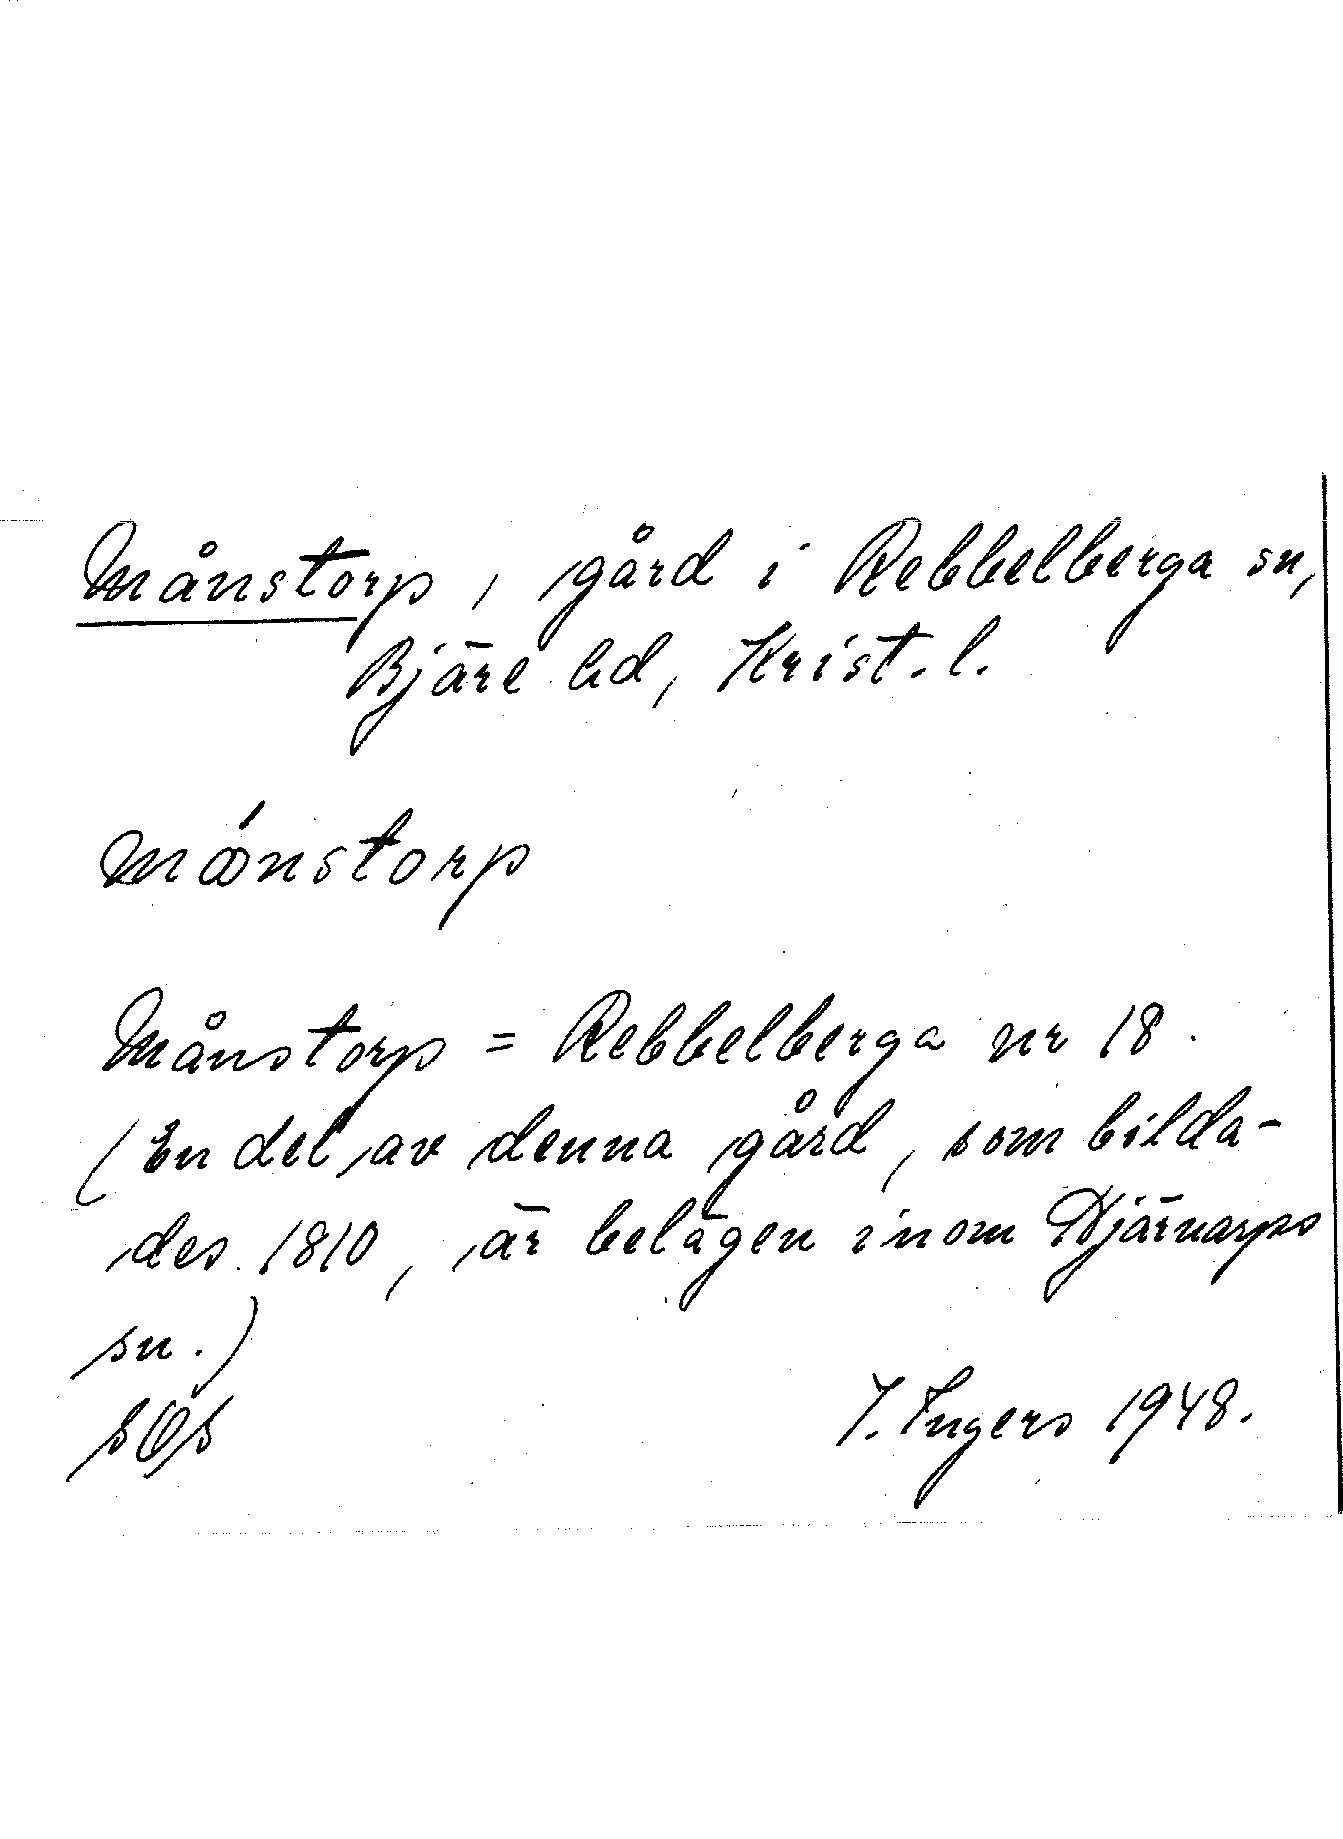 Månstorp, gård i Rebbelberga sn,
Bjäre hd, Krist. l.
mánstorp
Månstorp = Rebbelberga nr 18.
(En del av denna gård, som bilda-
des 1810, är belägen inom Hjärnarps
sn.)
SOS
I. Ingers 1948.